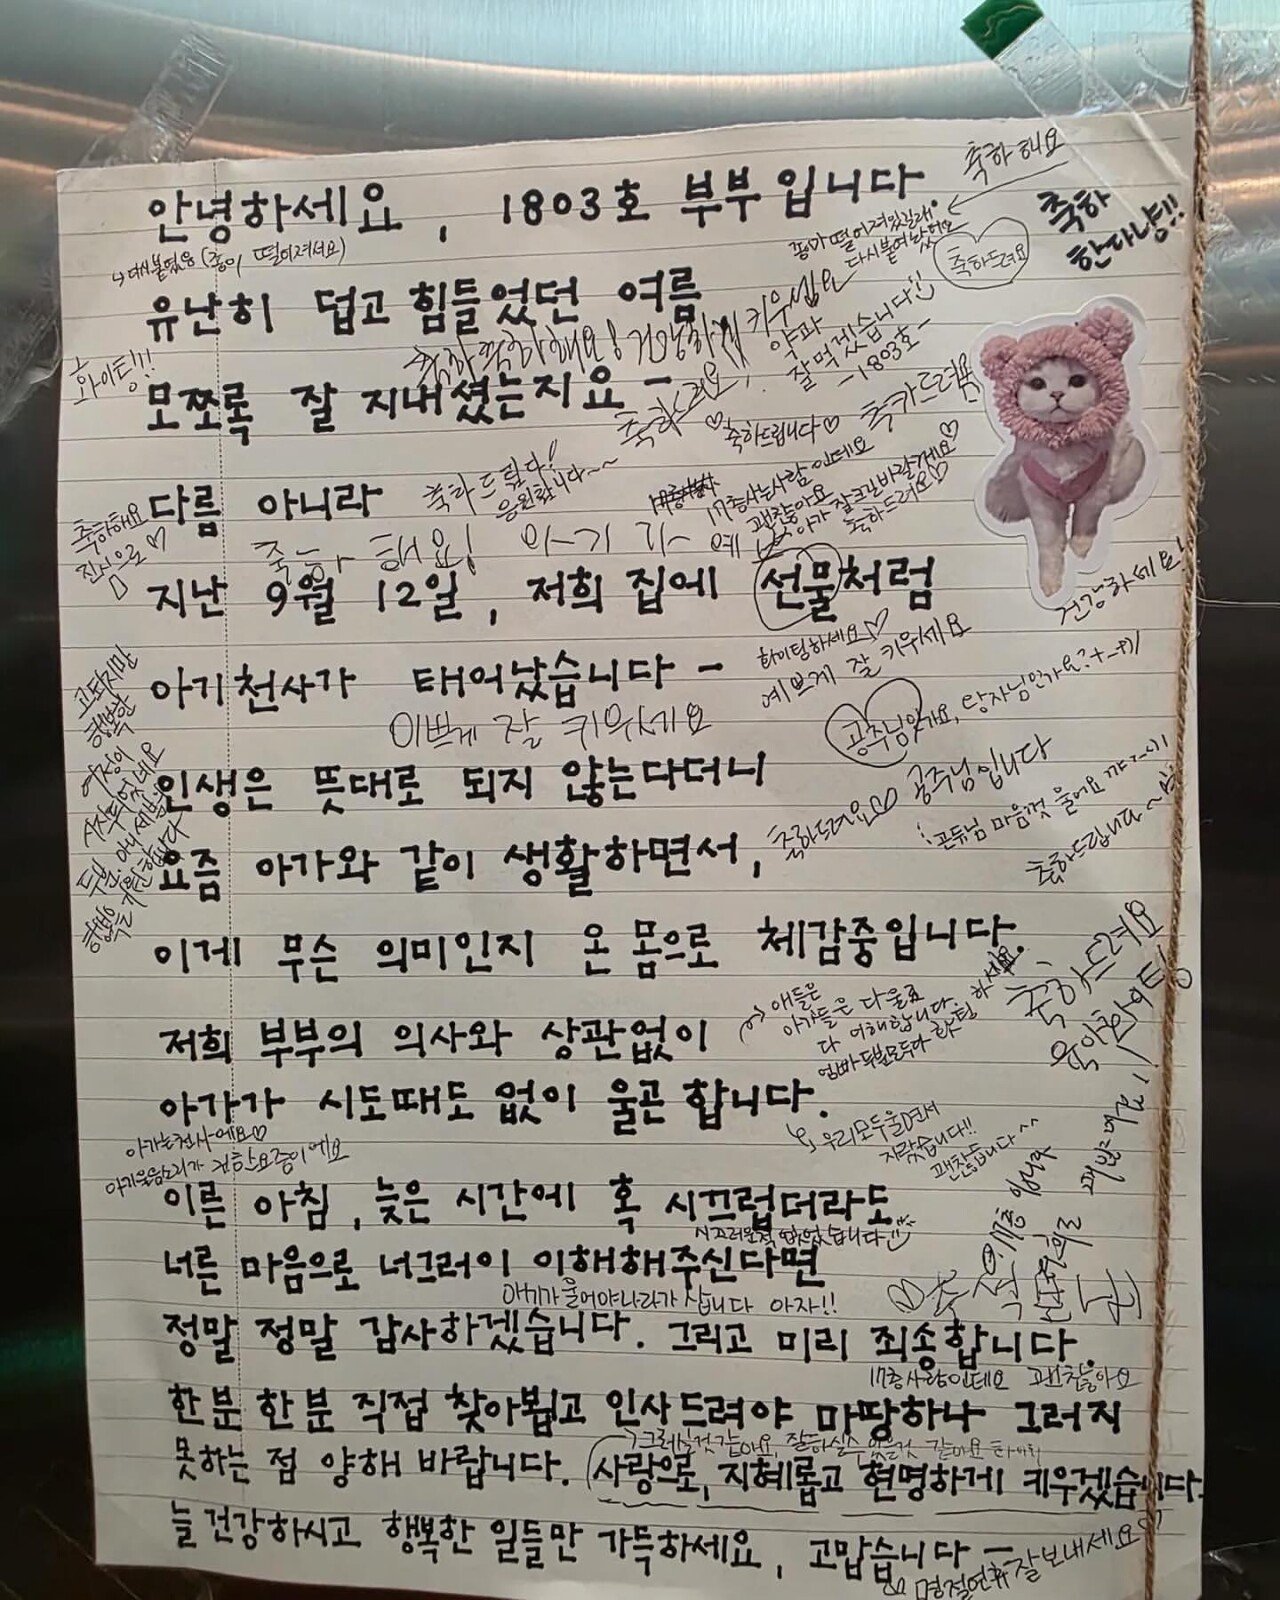 안녕하세요, 1803호 부부입니다.
축하해요
축하
한다냥!!
다시붙였음 (종이 떨어져서요)
떨어져있길래
다시붙여놨어요
축하드려요
유난히 덥고 힘들었던 여름
화이팅!!!
축하축하해요! 건강하게 키우세요
약과
잘 먹겠습니다!
-1803호-
모쪼록 잘 지내셨는지요-
축하드려요
♡축하드립니다♡
축카드려욤
다름 아니라
축하해요
진심으로♡
축하드립니다!
응원합니다~~
17층사는사람인데요
괜찮아요
아가 잘크길바랄게요♡
축하드려요♡
축하해요! 아기가 예
지난 9월 12일, 저희 집에 선물처럼
건강하세요!
화이팅하세요♡
예쁘게 잘 키우세요
아기천사가 태어났습니다-
이쁘게 잘 키우세요
공주님인가요, 왕자님인가요?
고되지만
행복한
여정이
시작되었네요
두분, 아니 세분
행복을 기원합니다
인생은 뜻대로 되지 않는다더니
축하드려요♡♡ 공주님입니다
곤듀님 마음껏 울어요
축하드립니다~
요즘 아가와 같이 생활하면서,
이게 무슨 의미인지 온 몸으로 체감중입니다.
축하드려요
육아화이팅
애들은
아가들은 다울죠
다 이해합니다.
엄빠 두분모두다 화팅 하세요
저희 부부의 의사와 상관없이
아가가 시도때도 없이 울곤 합니다.
우리모두울면서
자랐습니다!!
괜찮습니다^^
아가는천사에요♡
아기울음소리가 귀한요즘이에요
이른 아침, 늦은 시간에 혹 시끄럽더라도
시끄러운적 없었습니다
너른 마음으로 너그러이 이해해주신다면
아기가 울어야나라가 삽니다 아자!!
정말 정말 감사하겠습니다. 그리고 미리 죄송합니다.
17층사람인데요 괜찮아요
한분 한분 직접 찾아뵙고 인사드려야 마땅하나 그러지
그러실것 같아요, 잘하실수 있을것 같아요
못하는 점 양해 바랍니다. 사랑으로, 지혜롭고 현명하게 키우겠습니다.
늘 건강하시고 행복한 일들만 가득하세요, 고맙습니다-
명절연휴 잘보내세요